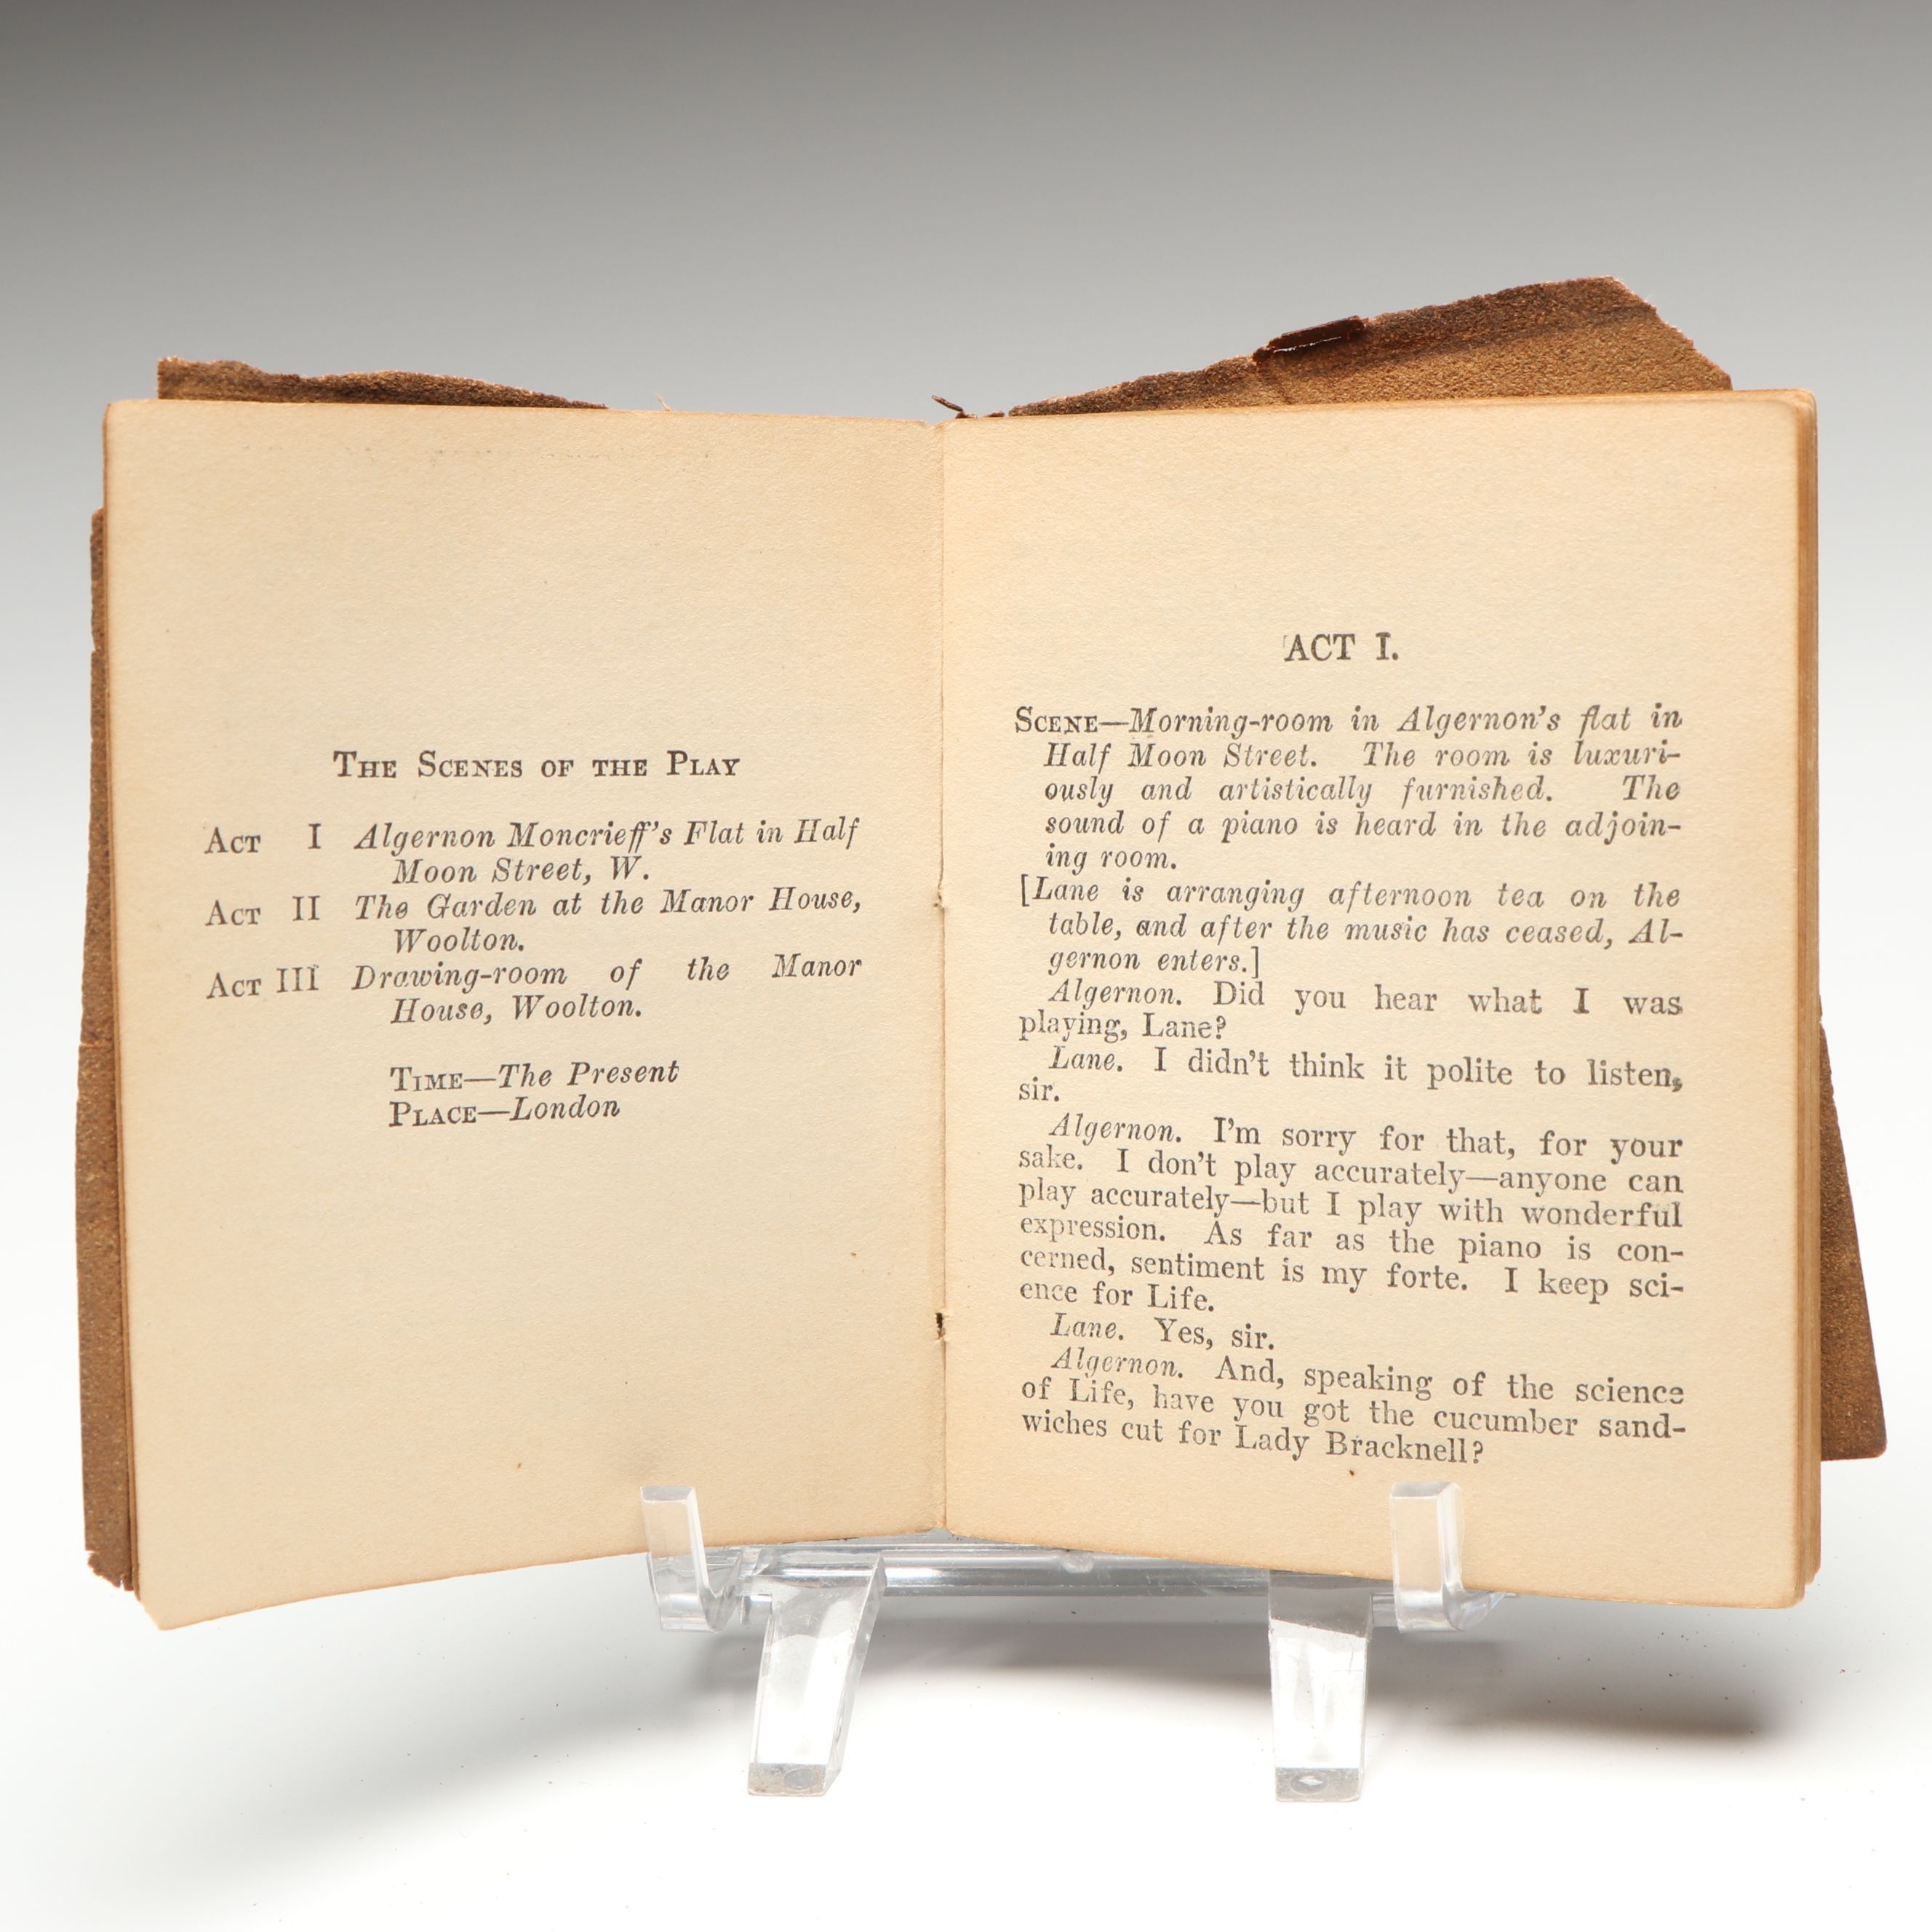 THE SCENES OF THE PLAY
ACT I Algernon Moncrieff's Flat in Half
Moon Street, W.
ACT II The Garden at the Manor House,
Woolton.
ACT III Drawing-room of the Manor
House, Woolton.
TIME—The Present
PLACE—London
ACT I.
SCENE—Morning-room in Algernon's flat in
Half Moon Street. The room is luxuri-
ously and artistically furnished. The
sound of a piano is heard in the adjoin-
ing room.
[Lane is arranging afternoon tea on the
table, and after the music has ceased, Al-
gernon enters.]
Algernon. Did you hear what I was
playing, Lane?
Lane. I didn't think it polite to listen,
sir.
Algernon. I'm sorry for that, for your
sake. I don't play accurately—anyone can
play accurately—but I play with wonderful
expression. As far as the piano is con-
cerned, sentiment is my forte. I keep sci-
ence for Life.
Lane. Yes, sir.
Algernon. And, speaking of the science
of Life, have you got the cucumber sand-
wiches cut for Lady Bracknell?